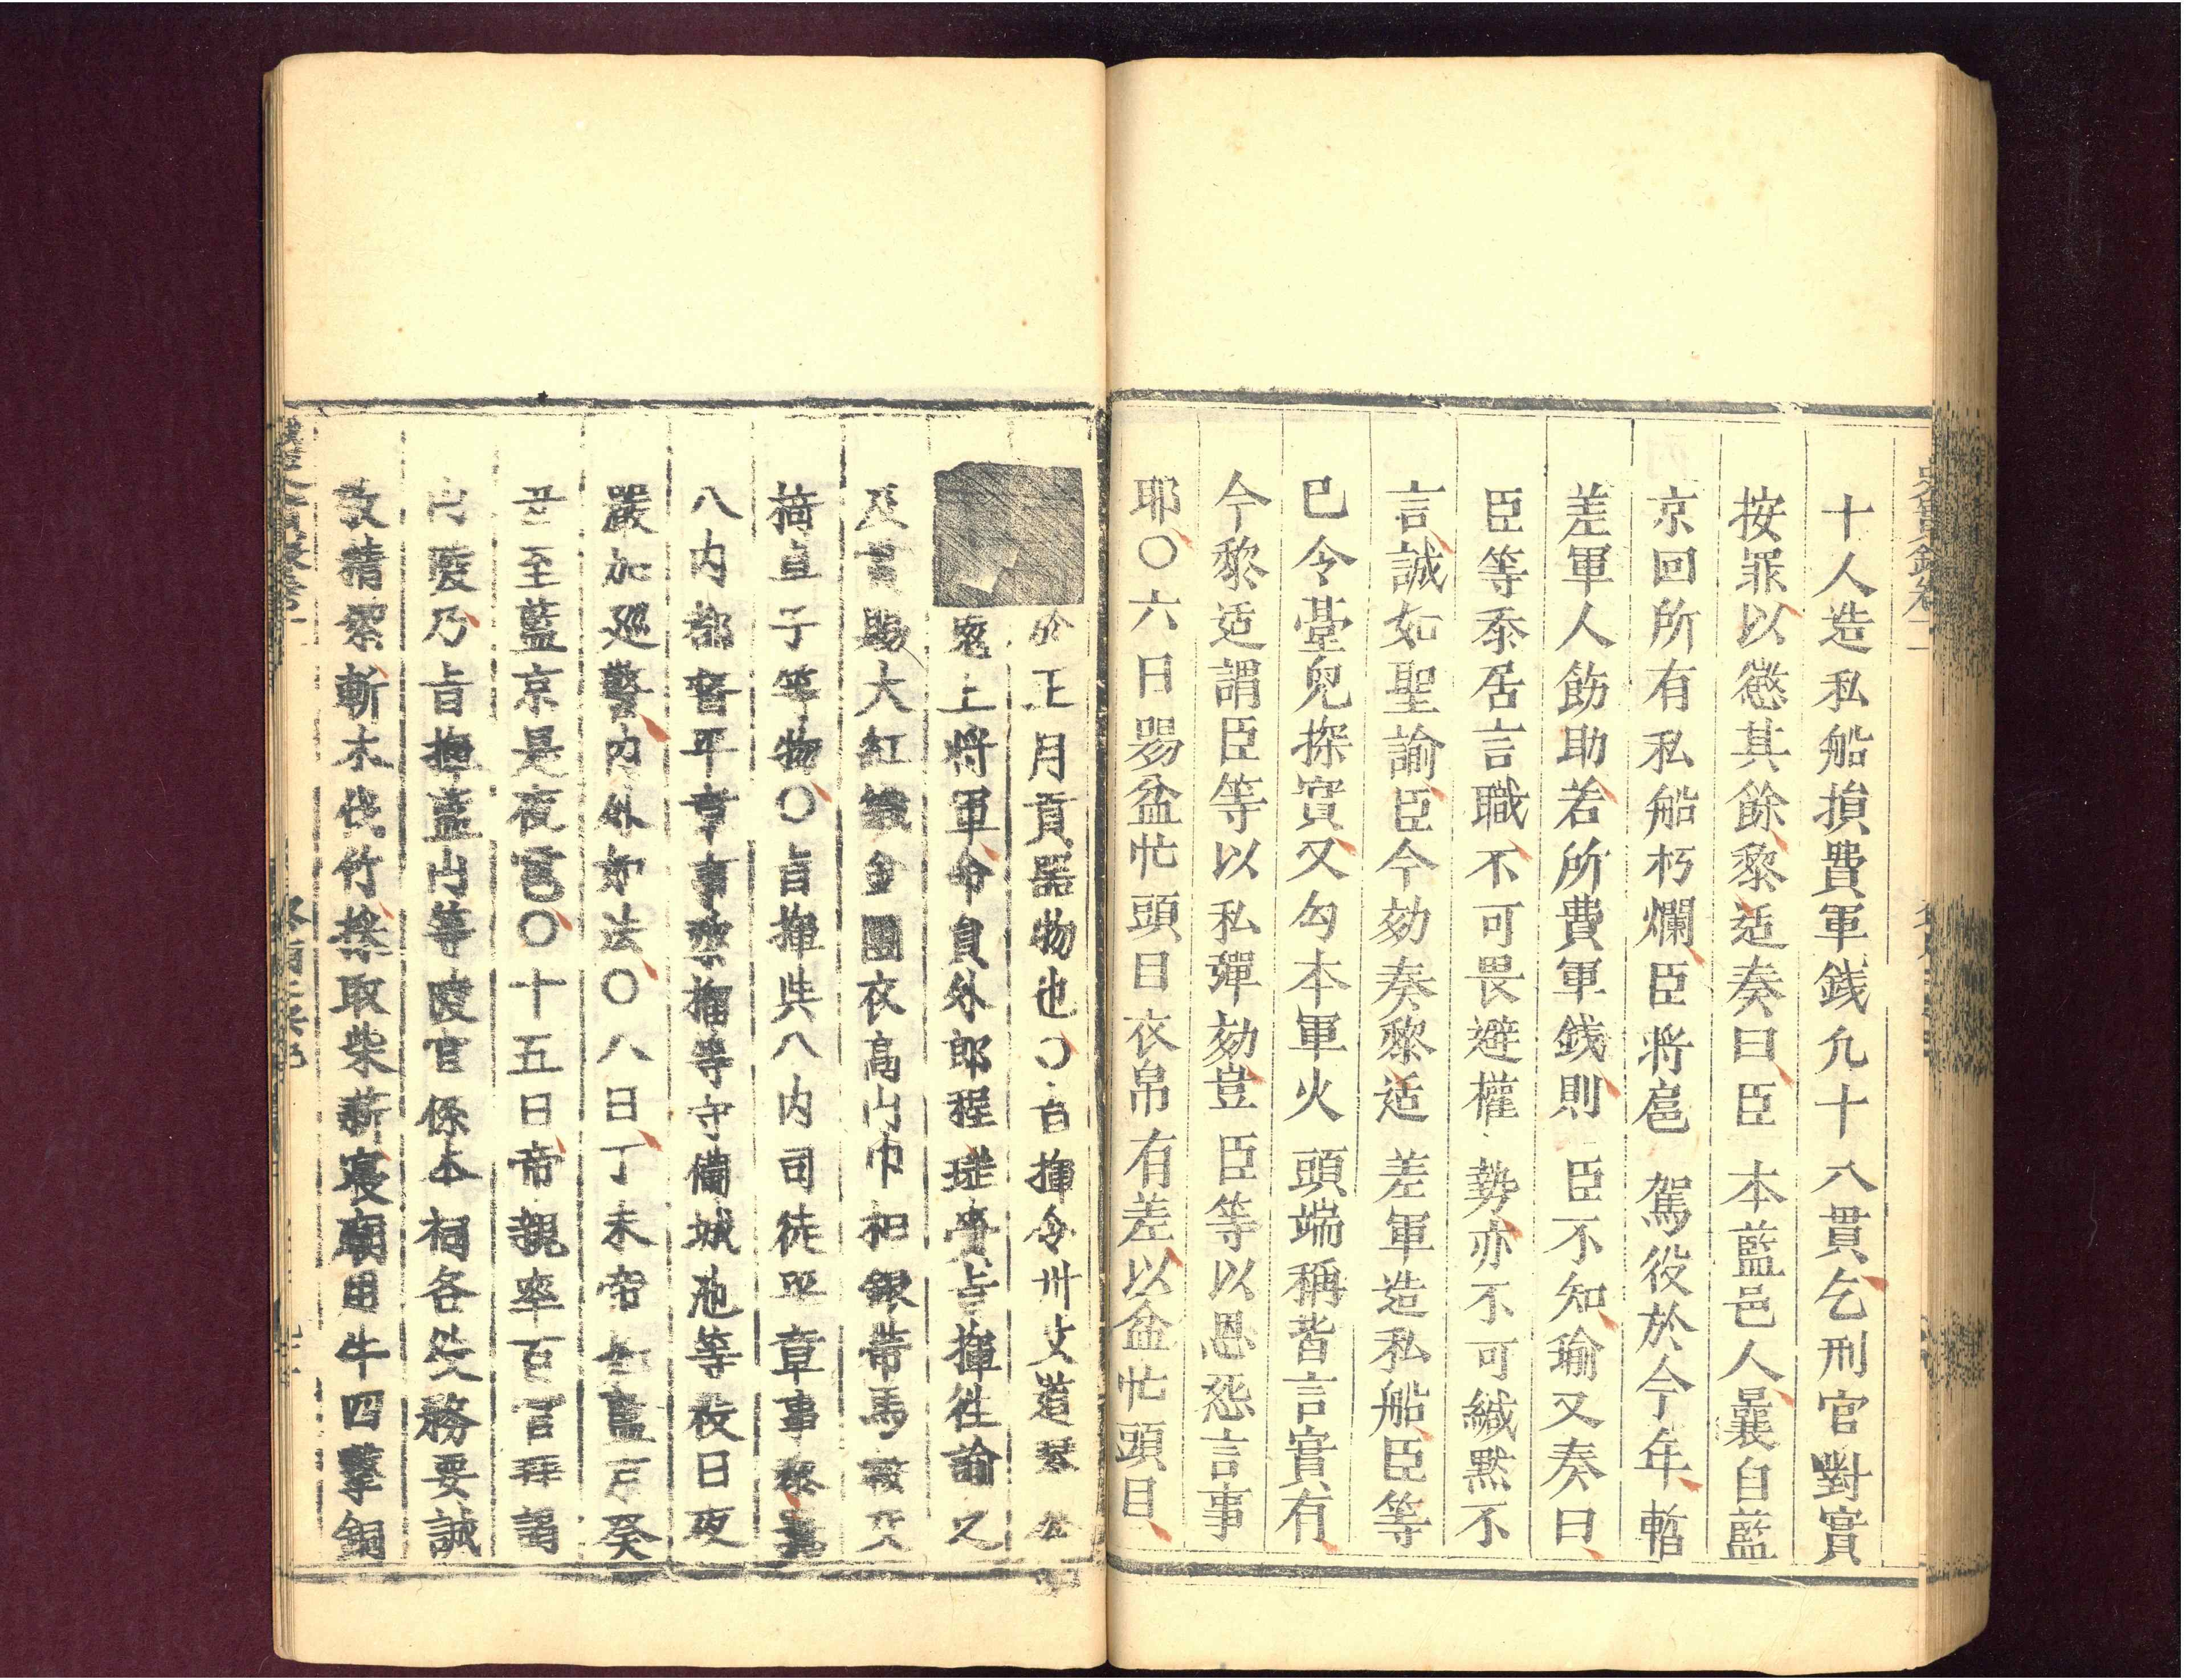 十人造私船損費軍銭九十八貫乞刑官對實
按罪以懲其餘黎适奏曰臣本藍邑人曩自藍
京回所有私船朽爛臣将扈駕役於今年暫
差軍人飭助若所費軍銭則臣不知瑜又奏曰
臣等忝居言職不可畏避權勢亦不可緘黙不
言誠如聖諭臣今劾奏黎适差軍造私船臣等
已令臺兒探實又勾本軍火頭端稱皆言實有
今黎适謂臣等以私彈劾豈臣等以恩怨言事
耶〇六日賜盆忙頭目衣帛有差以盆忙頭目
正月貢器物也〇旨揮令卅丈道
上将軍命員外郎程 旨揮往論之
及 賜大紅織金團衣高山巾和銀帶馬
揥直子等物〇旨揮共八内司徒平章事黎
八内都督平章事 等守備城池等役日夜
嚴加廵警内外如法〇八日丁未帝 藍京癸
丑至藍京是夜 〇十五日帝親率百官拜謁
乃旨揮藍山等陵官係本祠各役務要誠
敬精潔斬木伐竹採取柴薪寝廟用牛四擊銅